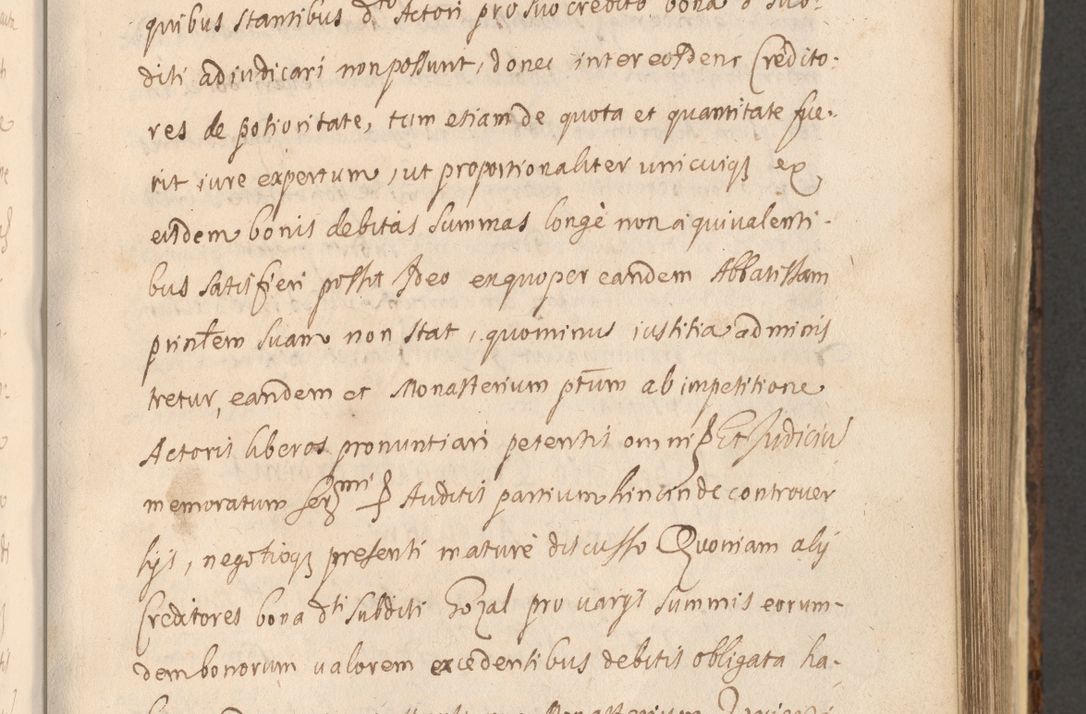 quibus stantibus dto Actori pro suo credito bona d subditi
diti adiudicari non possunt, donec inter eosdem Credito-
res de potioritate, tum etiam de quota et quantitate fue-
rit iure expertum, ut proportionaliter unicuiqꝫ ex
eisdem bonis debitas summas longè non aequivalenti-
bus satisfieri possit Ideo ex quo per eandem Abbatissam
printem suam non stat, quominus iustitia adminis
tretur, eandem et Monasterium ptum ab impetitione
Actoris liberos pronuntiari petentis omni Et Judiciu
memoratum Auditis partium hinc inde controver
sijs, negotioqꝫ presenti maturè discusso Quoniam alij
Creditores bona dti subditi Gozal pro varijs summis eorum-
dem bonorum valorem excedentibus debitis obligata ha-